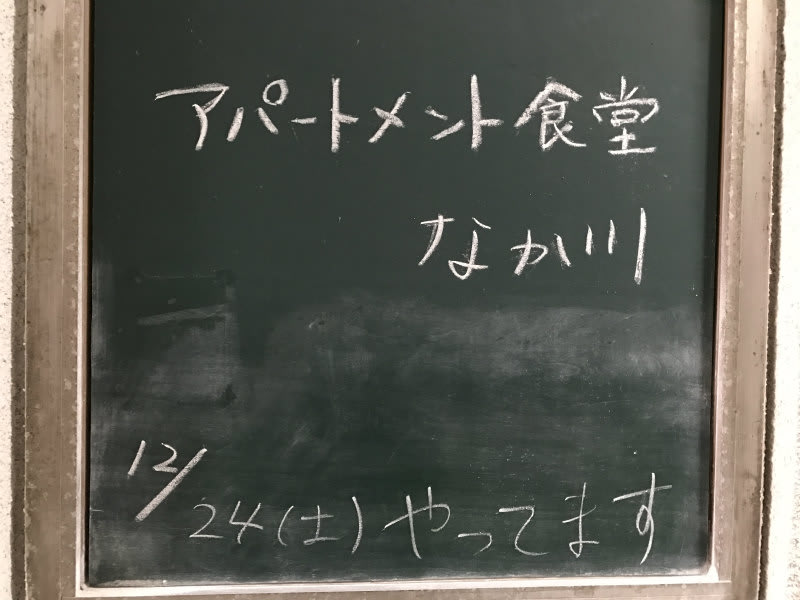 アパートメント食堂
なか川
12/24(土)やってます